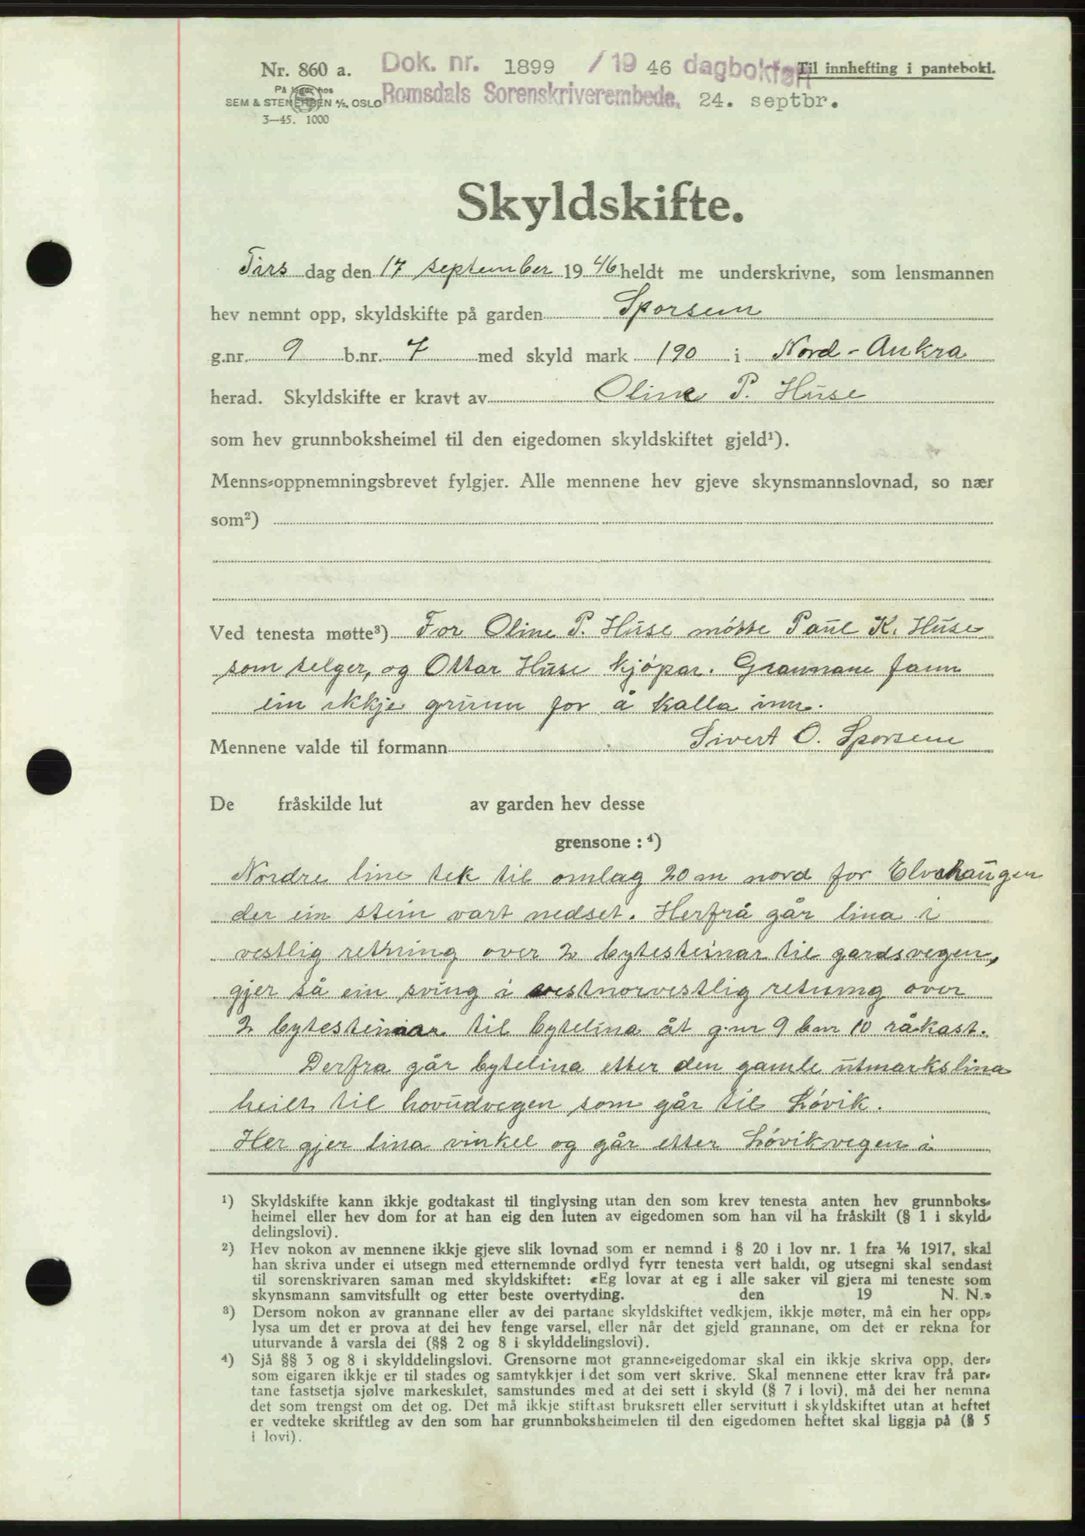 Nr. 860 a.
Dok. nr. 1899 / 19 46 dagbokført
Til innhefting i pantebokl.
På lager hos
SEM & STENERSEN A/S, OSLO
Romsdals Sorenskriverembede, 24. septbr.
3—45. 1000
Skyldskifte.
Tirs dag den 17 september 19 46 heldt me underskrivne, som lensmannen
hev nemnt opp, skyldskifte på garden Sporsem
g.nr. 9 b.nr. 7 med skyld mark 190 i Nord-Aukra
herad. Skyldskifte er kravt av Oline P. Huse
som hev grunnboksheimel til den eigedomen skyldskiftet gjeld¹).
Menns-oppnemningsbrevet fylgjer. Alle mennene hev gjeve skynsmannslovnad, so nær
som²)
Ved tenesta møtte³) For Oline P. Huse møtte Paul K. Huse
som selger, og Ottar Huse kjøpar. Grannane fann
ein ikkje grunn for å kalla inn.
Mennene valde til formann Sivert O. Sporsem
De fråskilde lut av garden hev desse
grensone : ⁴)
Nordre line tek til omlag 20 m nord for Elvehaugen
der ein stein vart nedset. Herfrå går lina i
vestlig retning over 2 bytesteinar til gardsvegen,
gjer så ein sving i vestnorvestlig retning over
2 bytesteinar til bytelina åt g.nr 9 b.nr 10 råkast.
Derfra går bytelina etter den gamle utmarkslina
heilt til hovudvegen som går til Løvik.
Her gjer lina vinkel og går etter Løvikvegen i
¹) Skyldskifte kann ikkje godtakast til tinglysing utan den som krev tenesta anten hev grunnboks-
heimel eller hev dom for at han eig den luten av eigedomen som han vil ha fråskilt (§ 1 i skyld-
delingslovi).
²) Hev nokon av mennene ikkje gjeve slik lovnad som er nemnd i § 20 i lov nr. 1 fra 1/6 1917, skal
han skriva under ei utsegn med etternemnde ordlyd fyrr tenesta vert haldi, og utsegni skal sendast
til sorenskrivaren saman med skyldskiftet: «Eg lovar at eg i alle saker vil gjera mi teneste som
skynsmann samvitsfullt og etter beste overtyding. den 19 N. N.»
³) Dersom nokon av grannane eller av dei partane skyldskiftet vedkjem, ikkje møter, må ein her opp-
lysa um det er prova at dei hev fenge varsel, eller når det gjeld grannane, om det er rekna for
uturvande å varsla dei (§§ 2 og 8 i skylddelingslovi).
⁴) Sjå §§ 3 og 8 i skylddelingslovi. Grensorne mot granne-eigedomar skal ein ikkje skriva opp, der-
som eigaren ikkje er til stades og samtykkjer i det som vert skrive. Skal mennene etter krav frå par-
tane fastsetja sjølve markeskilet, samstundes med at dei sett i skyld (§ 7 i lovi), må dei her nemna
det som trengst om det og. Det må ikkje stiftast bruksrett eller servitutt i skyldskiftet utan at heftet
er vedteke skriftleg av den som har grunnboksheimelen til den eigedomen heftet skal liggja på (§ 5
i lovi).